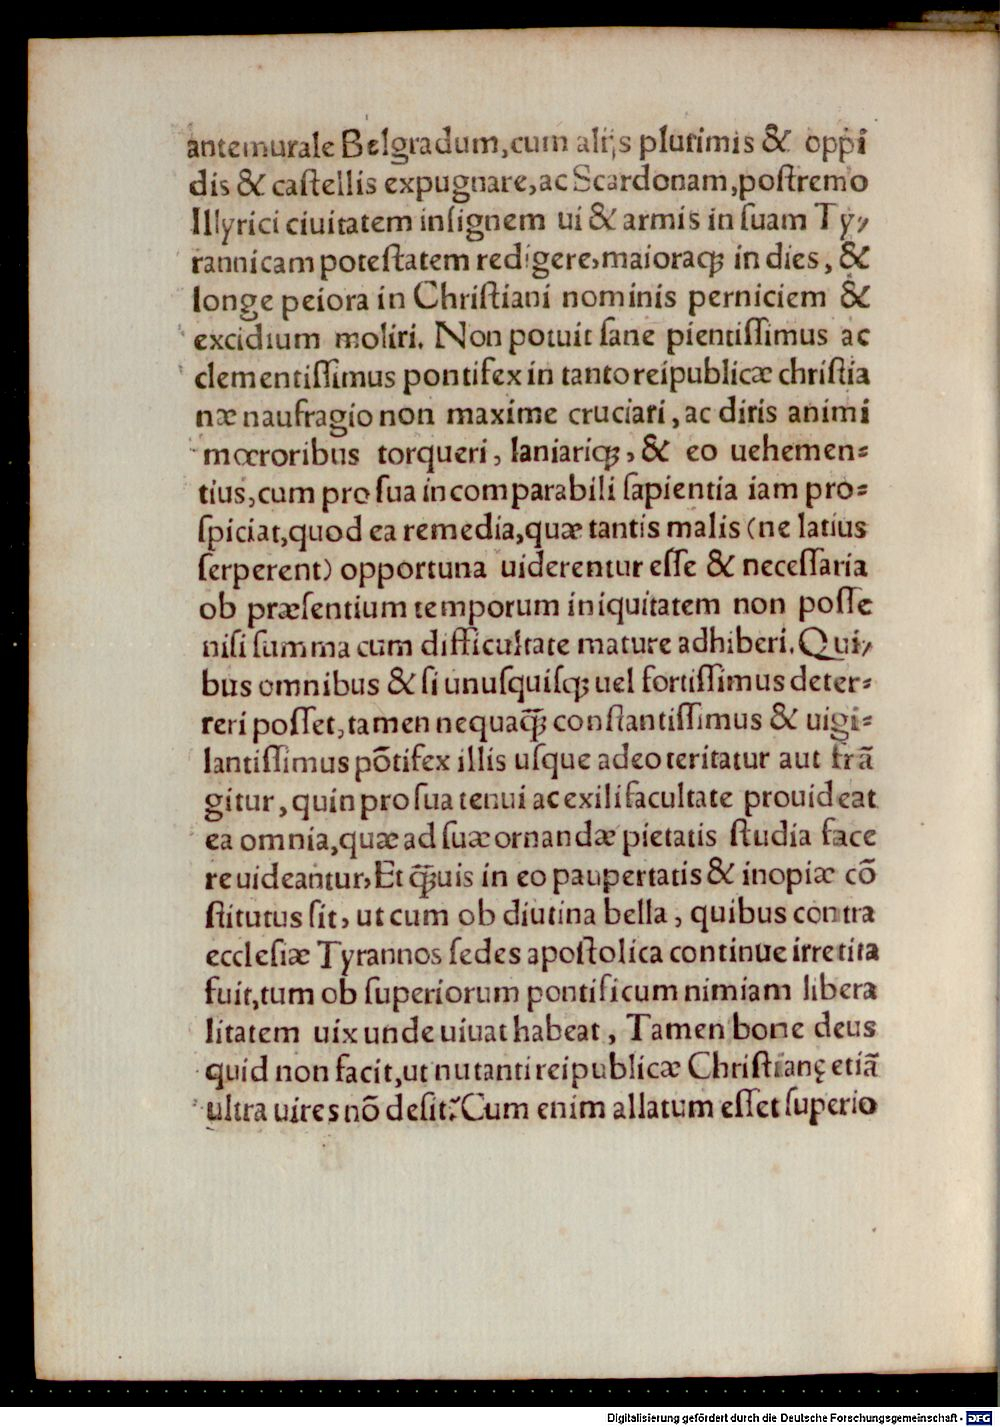 antemurale Belgradum,cum alijs plurimis & oppi
dis & caſtellis expugnare,ac Scardonam,poſtremo
Illyrici ciuitatem inſignem ui & armis in ſuam Ty⸗
rannicam poteſtatem redigere,maioraqꝫ in dies, &
longe peiora in Chriſtiani nominis perniciem &
excidium moliri. Non potuit ſane pientiſſimus ac
clementiſſimus pontifex in tanto reipublicæ chriſtia
næ naufragio non maxime cruciari, ac diris animi
mœroribus torqueri, laniariqꝫ, & eo uehemen⸗
tius,cum pro ſua incomparabili ſapientia iam pro⸗
ſpiciat,quod ea remedia,quæ tantis malis (ne latius
ſerperent) opportuna uiderentur eſſe & neceſſaria
ob præſentium temporum iniquitatem non poſſe
niſi ſumma cum difficultate mature adhiberi. Qui⸗
bus omnibus & ſi unuſquiſqꝫ uel fortiſſimus deter⸗
reri poſſet,tamen nequaq̃ꝫ conſtantiſſimus & uigi⸗
lantiſſimus põtifex illis uſque adeo teritatur aut frã
gitur, quin pro ſua tenui ac exili facultate prouideat
ea omnia,quæ ad ſuæ ornandæ pietatis ſtudia face
re uideantur,Et q̃ꝫuis in eo paupertatis & inopiæ cõ
ſtitutus ſit, ut cum ob diutina bella, quibus contra
eccleſiæ Tyrannos ſedes apoſtolica continue irretita
fuit,tum ob ſuperiorum pontificum nimiam libera
litatem uix unde uiuat habeat, Tamen bone deus
quid non facit,ut nutanti reipublicæ Chriſtianę etiã
ultra uires nõ deſit? Cum enim allatum eſſet ſuperio
Digitalisierung gefördert durch die Deutsche Forschungsgemeinschaft - DFG